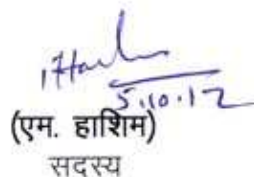 5.10.12
(एम. हाशिम)
सदस्य